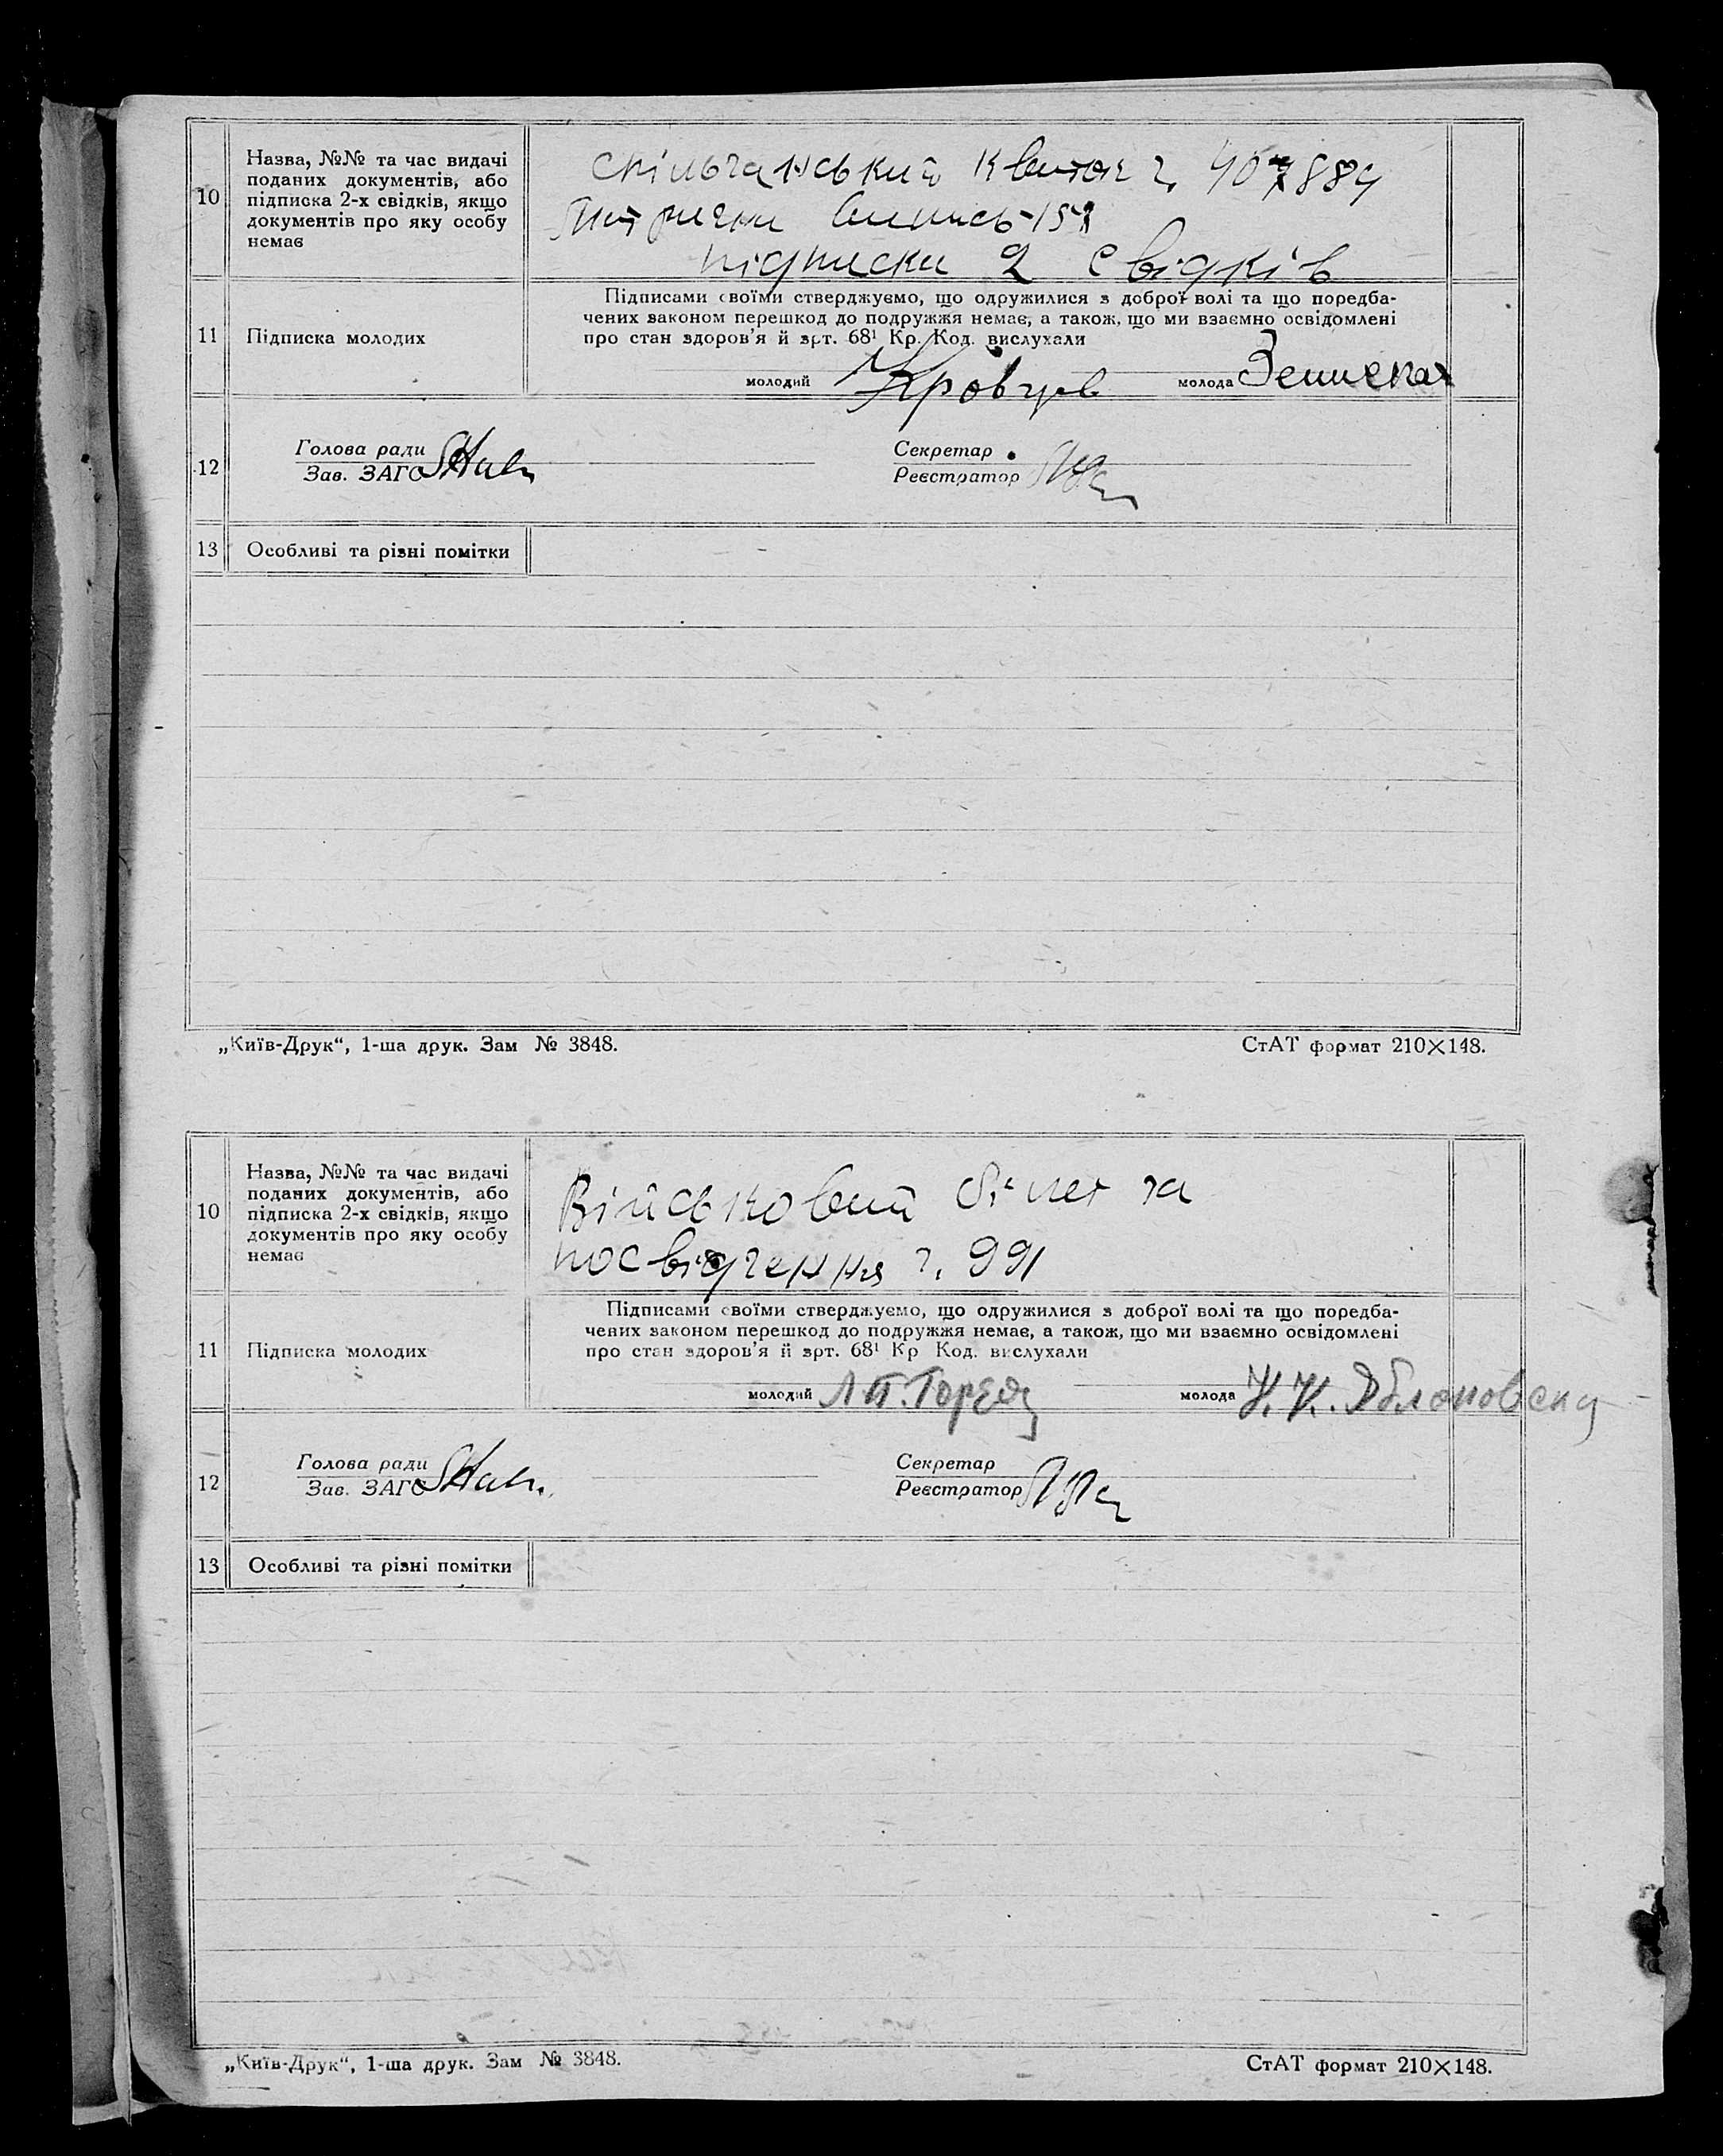 10
Назва, №№ та час видачі
поданих документів, або
підписка 2-х свідків, якщо
документів про яку особу
немає
спільчанський квиток ч. 407889
Метрична випись
підписки 2 свідків
11
Підписка молодих
Підписами своїми стверджуємо, що одружилися з доброї волі та що поредба-
чених законом перешкод до подружжя немає, а також, що ми взаємно освідомлені
про стан здоров'я й арт. 68¹ Кр. Код. вислухали
молодий Кровцов молода
12
Голова ради
Зав. ЗАГС
Секретар
Реєстратор
13 Особливі та різні помітки
„Київ-Друк“, 1-ша друк. Зам № 3848. СтАТ формат 210×148.
10
Назва, №№ та час видачі
поданих документів, або
підписка 2-х свідків, якщо
документів про яку особу
немає
Військовий білет та
посвідчення ч. 991
11
Підписка молодих
Підписами своїми стверджуємо, що одружилися з доброї волі та що поредба-
чених законом перешкод до подружжя немає, а також, що ми взаємно освідомлені
про стан здоров'я й арт. 68¹ Кр Код. вислухали
молодий Л П. молода
12
Голова ради
Зав. ЗАГС
Секретар
Реєстратор
13 Особливі та різні помітки
„Київ-Друк“, 1-ша друк. Зам № 3848. СтАТ формат 210×148.